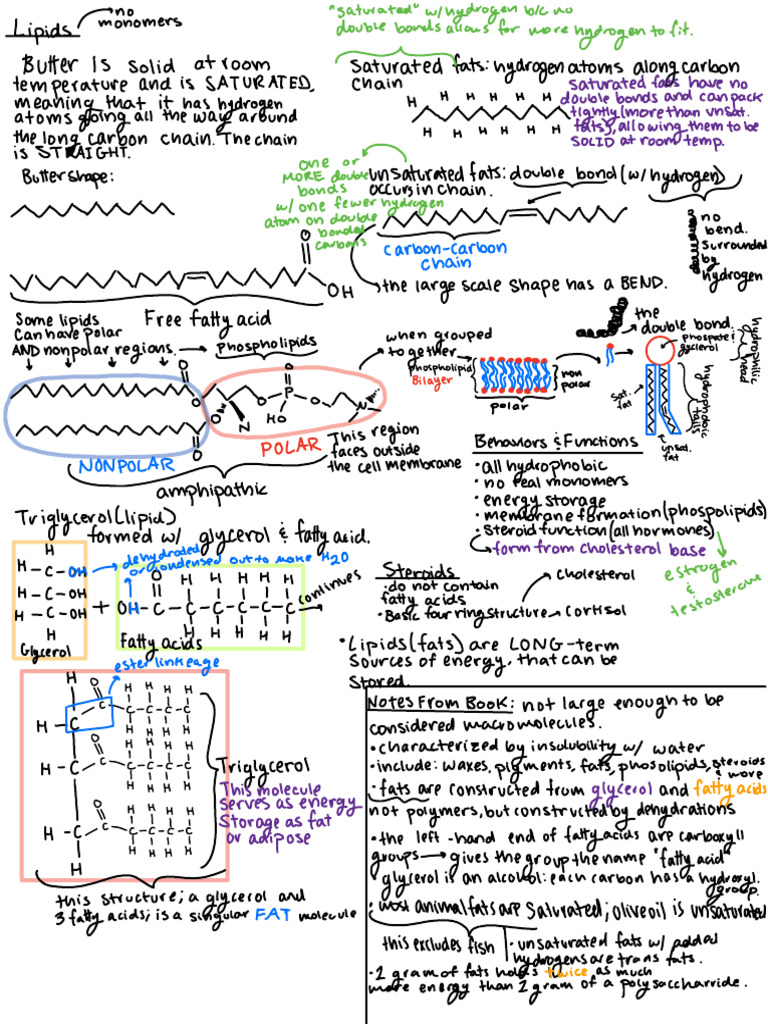 Lipids → no
monomers
"saturated" w/ hydrogen b/c no
double bonds allows for more hydrogen to fit.
Butter is solid at room
temperature and is SATURATED,
meaning that it has hydrogen
atoms going all the way around
the long carbon chain. The chain
is STRAIGHT.
Butter shape:
Saturated fats: hydrogen atoms along carbon
chain
H H H H H H
H H H H H H
Saturated fats have no
double bonds and can pack
tightly (more than unsat.
fats), allowing them to be
SOLID at room temp.
one or
MORE double
bonds
w/ one fewer hydrogen
atom on double
bonded
carbons
unsaturated fats: double bond (w/ hydrogen)
occurs in chain.
carbon-carbon
chain
no
bend.
surrounded
by
hydrogen
the large scale shape has a BEND.
O
OH
Free fatty acid
the
double bond.
Some lipids
can have polar
AND nonpolar regions. → phospholipids
O
O
O
O
O
P
O
HO
N
NONPOLAR
POLAR
amphipathic
This region
faces outside
the cell membrane
when grouped
together
phospholipid
Bilayer
non
polar
polar
phospate &
glycerol
hydrophilic
head
sat.
fat
unsat.
fat
hydrophobic
tails
Behaviors & Functions
• all hydrophobic
• no real monomers
• energy storage
• membrane formation (phospolipids)
• Steroid function (all hormones)
form from cholesterol base
estrogen
&
testosterone
Triglycerol (lipid)
formed w/ glycerol & fatty acid.
dehydrated
or condensed out to make H2O
H
H - C - OH
H - C - OH
H - C - OH
H
Glycerol
+
O
OH C - C - C - C - C - C - C
H H H H H H
H H H H H H
continues
Fatty acids
Steroids
• do not contain
fatty acids
• Basic four ring structure
Cholesterol
Cortisol
• Lipids (fats) are LONG-term
sources of energy, that can be
stored.
ester linkeage
H
H - C
H - C
H - C
H
Triglycerol
This molecule
serves as energy
storage as fat
or adipose
this structure; a glycerol and
3 fatty acids; is a singular FAT molecule
Notes From Book: not large enough to be
considered macromolecules.
• characterized by insolubility w/ water
• include: waxes, pigments, fats, phosolipids, steroids
& more
• fats are constructed from glycerol and fatty acids
not polymers, but constructed by dehydrations
• the left-hand end of fatty acids are carboxyll
groups → gives the group the name "fatty acid"
glycerol is an alcohol: each carbon has a hydroxyl
group.
• most animal fats are saturated; olive oil is unsaturated
this excludes fish
• unsaturated fats w/ added
hydrogens are trans fats.
• 1 gram of fats holds twice as much
more energy than 1 gram of a polysaccharide.